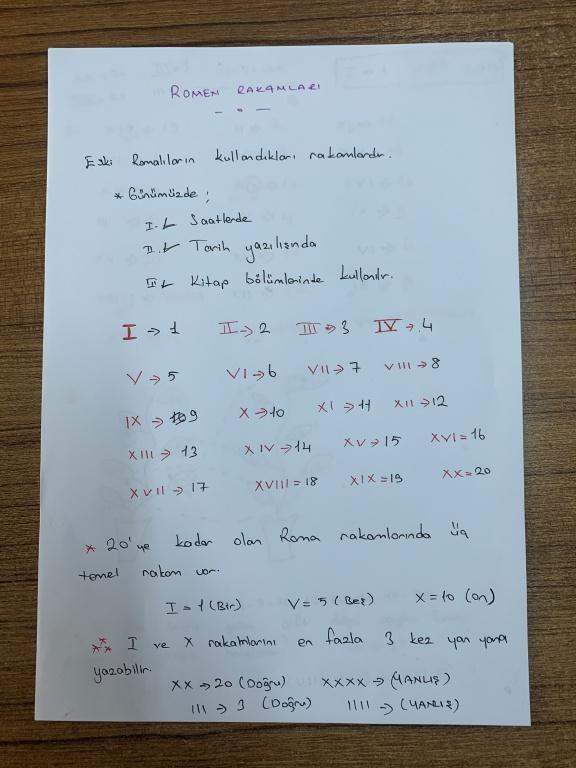 ROMEN RAKAMLARI
Eski Romalıların kullandıkları rakamlardır.
* Günümüzde ;
I. Saatlerde
II. Tarih yazılışında
III Kitap bölümlerinde kullanılır.
I → 1 II → 2 III → 3 IV → 4
V → 5 VI → 6 VII → 7 VIII → 8
IX → 9 X → 10 XI → 11 XII → 12
XIII → 13 XIV → 14 XV → 15 XVI = 16
XVII → 17 XVIII = 18 XIX = 19 XX = 20
* 20'ye kadar olan Roma rakamlarında üç
temel rakam var.
I = 1 (Bir) V = 5 (Beş) X = 10 (On)
*** I ve X rakamlarını en fazla 3 kez yan yana
yazabilir.
XX → 20 (Doğru) XXXX → (YANLIŞ)
III → 3 (Doğru) IIII → (YANLIŞ)